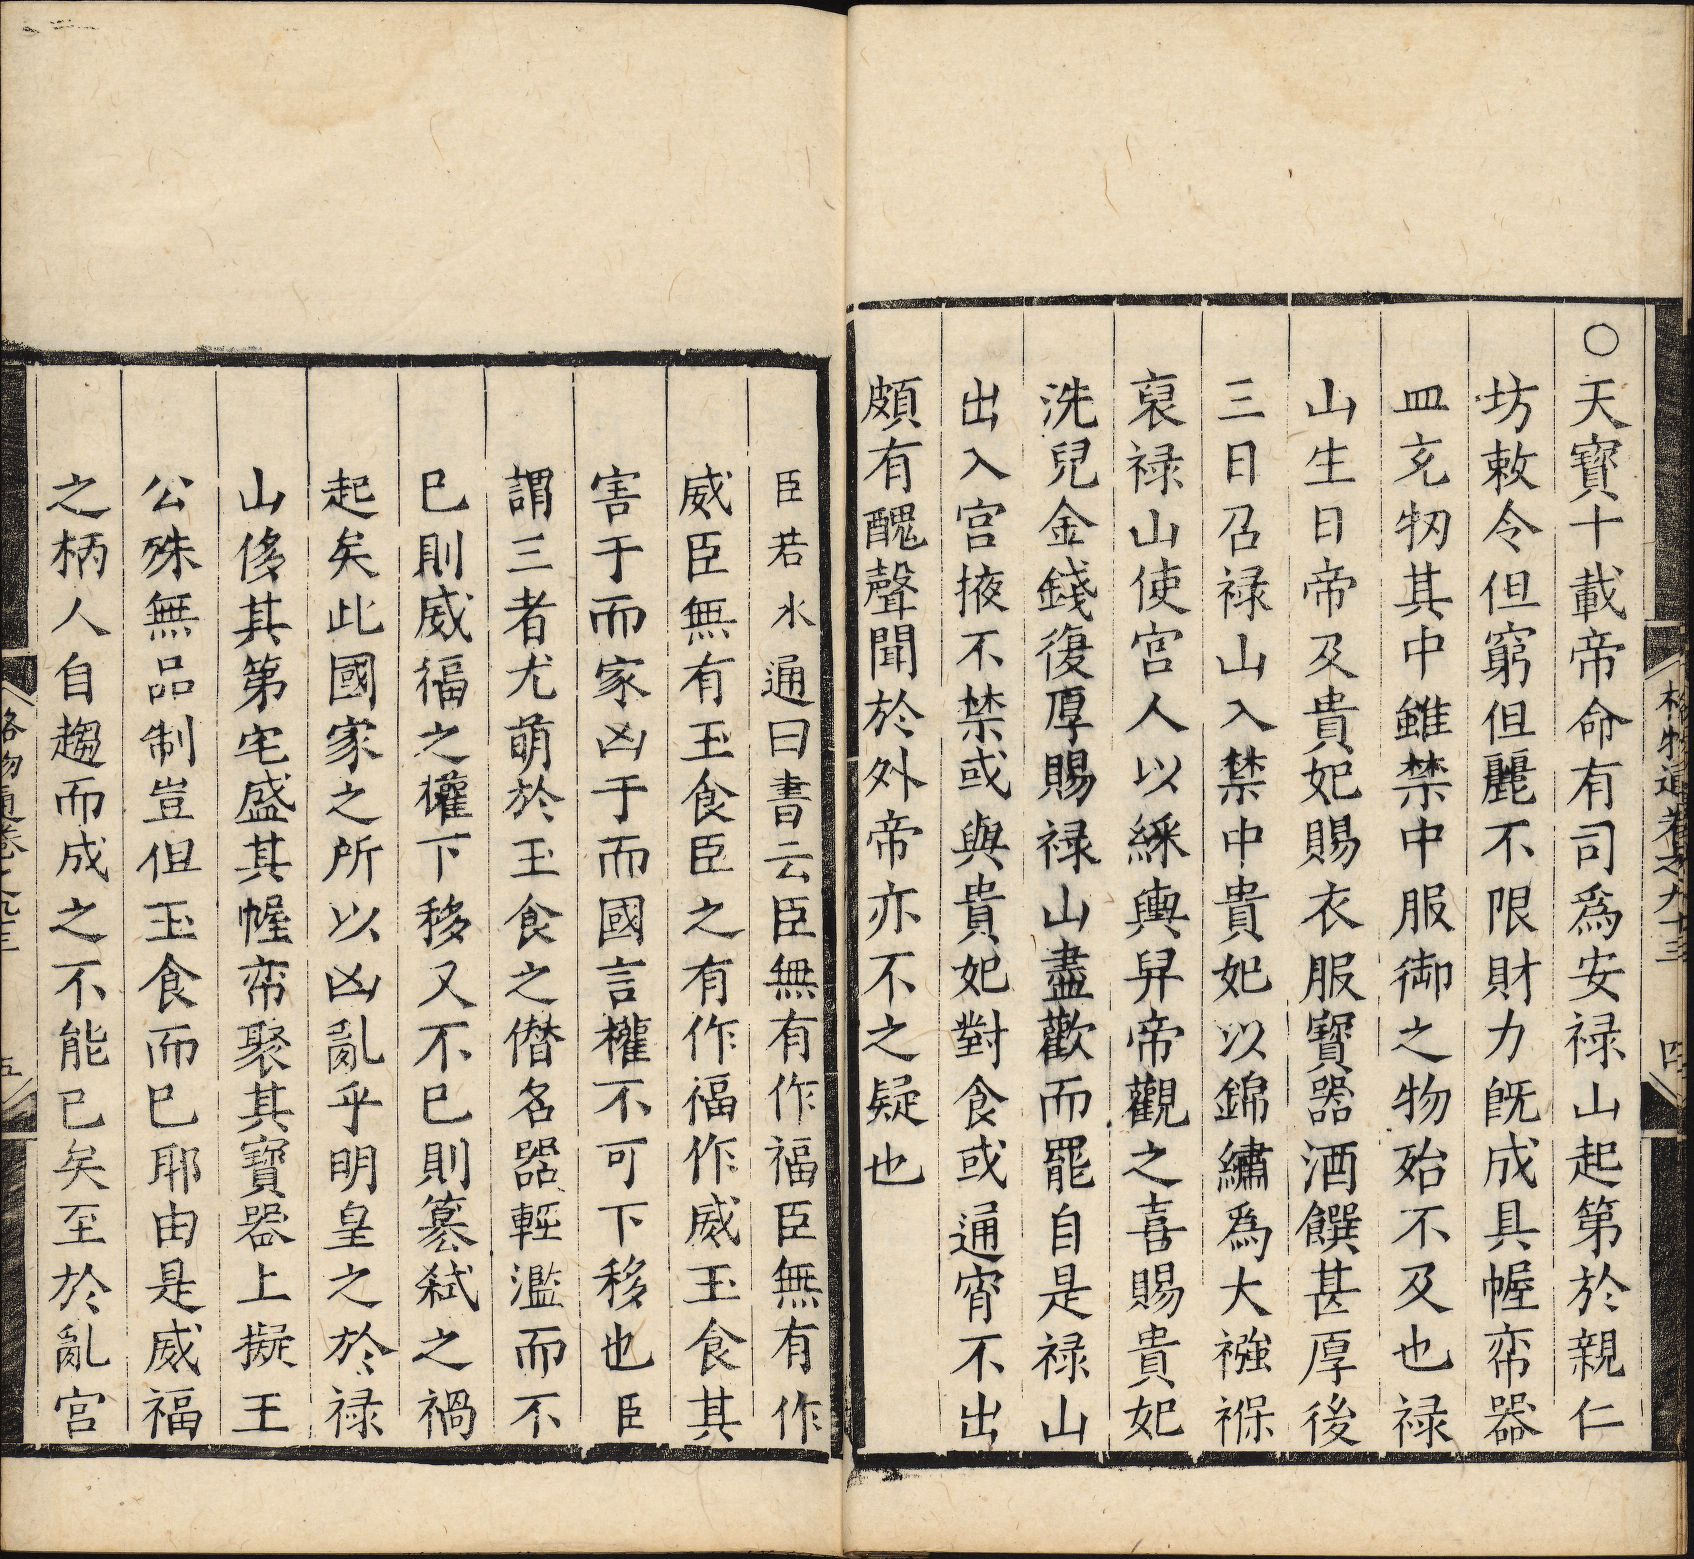 ○天寶十載帝命有司爲安禄山起第於親仁
坊敕令但窮但麗不限財力既成具幄帟器
皿充牣其中雖禁中服御之物殆不及也禄
山生日帝及貴妃賜衣服寶器酒饌甚厚後
三日召禄山入禁中貴妃以錦繡爲大襁褓
裹禄山使宫人以綵輿舁帝觀之喜賜貴妃
洗兒金錢復厚賜禄山盡歡而罷自是禄山
出入宫掖不禁或與貴妃對食或通宵不出
頗有醜聲聞於外帝亦不之疑也
臣若水通曰書云臣無有作福臣無有作
威臣無有玉食臣之有作福作威玉食其
害于而家凶于而國言權不可下移也臣
謂三者尤萌於玉食之僣名器輕濫而不
已則威福之權下移又不已則簒弑之禍
起矣此國家之所以凶亂乎明皇之於禄
山侈其第宅盛其幄帟聚其寶器上擬王
公殊無品制豈但玉食而已耶由是威福
之柄人自趨而成之不能已矣至於亂宫
格物通卷之九十三
五
格物通卷之九十三
四